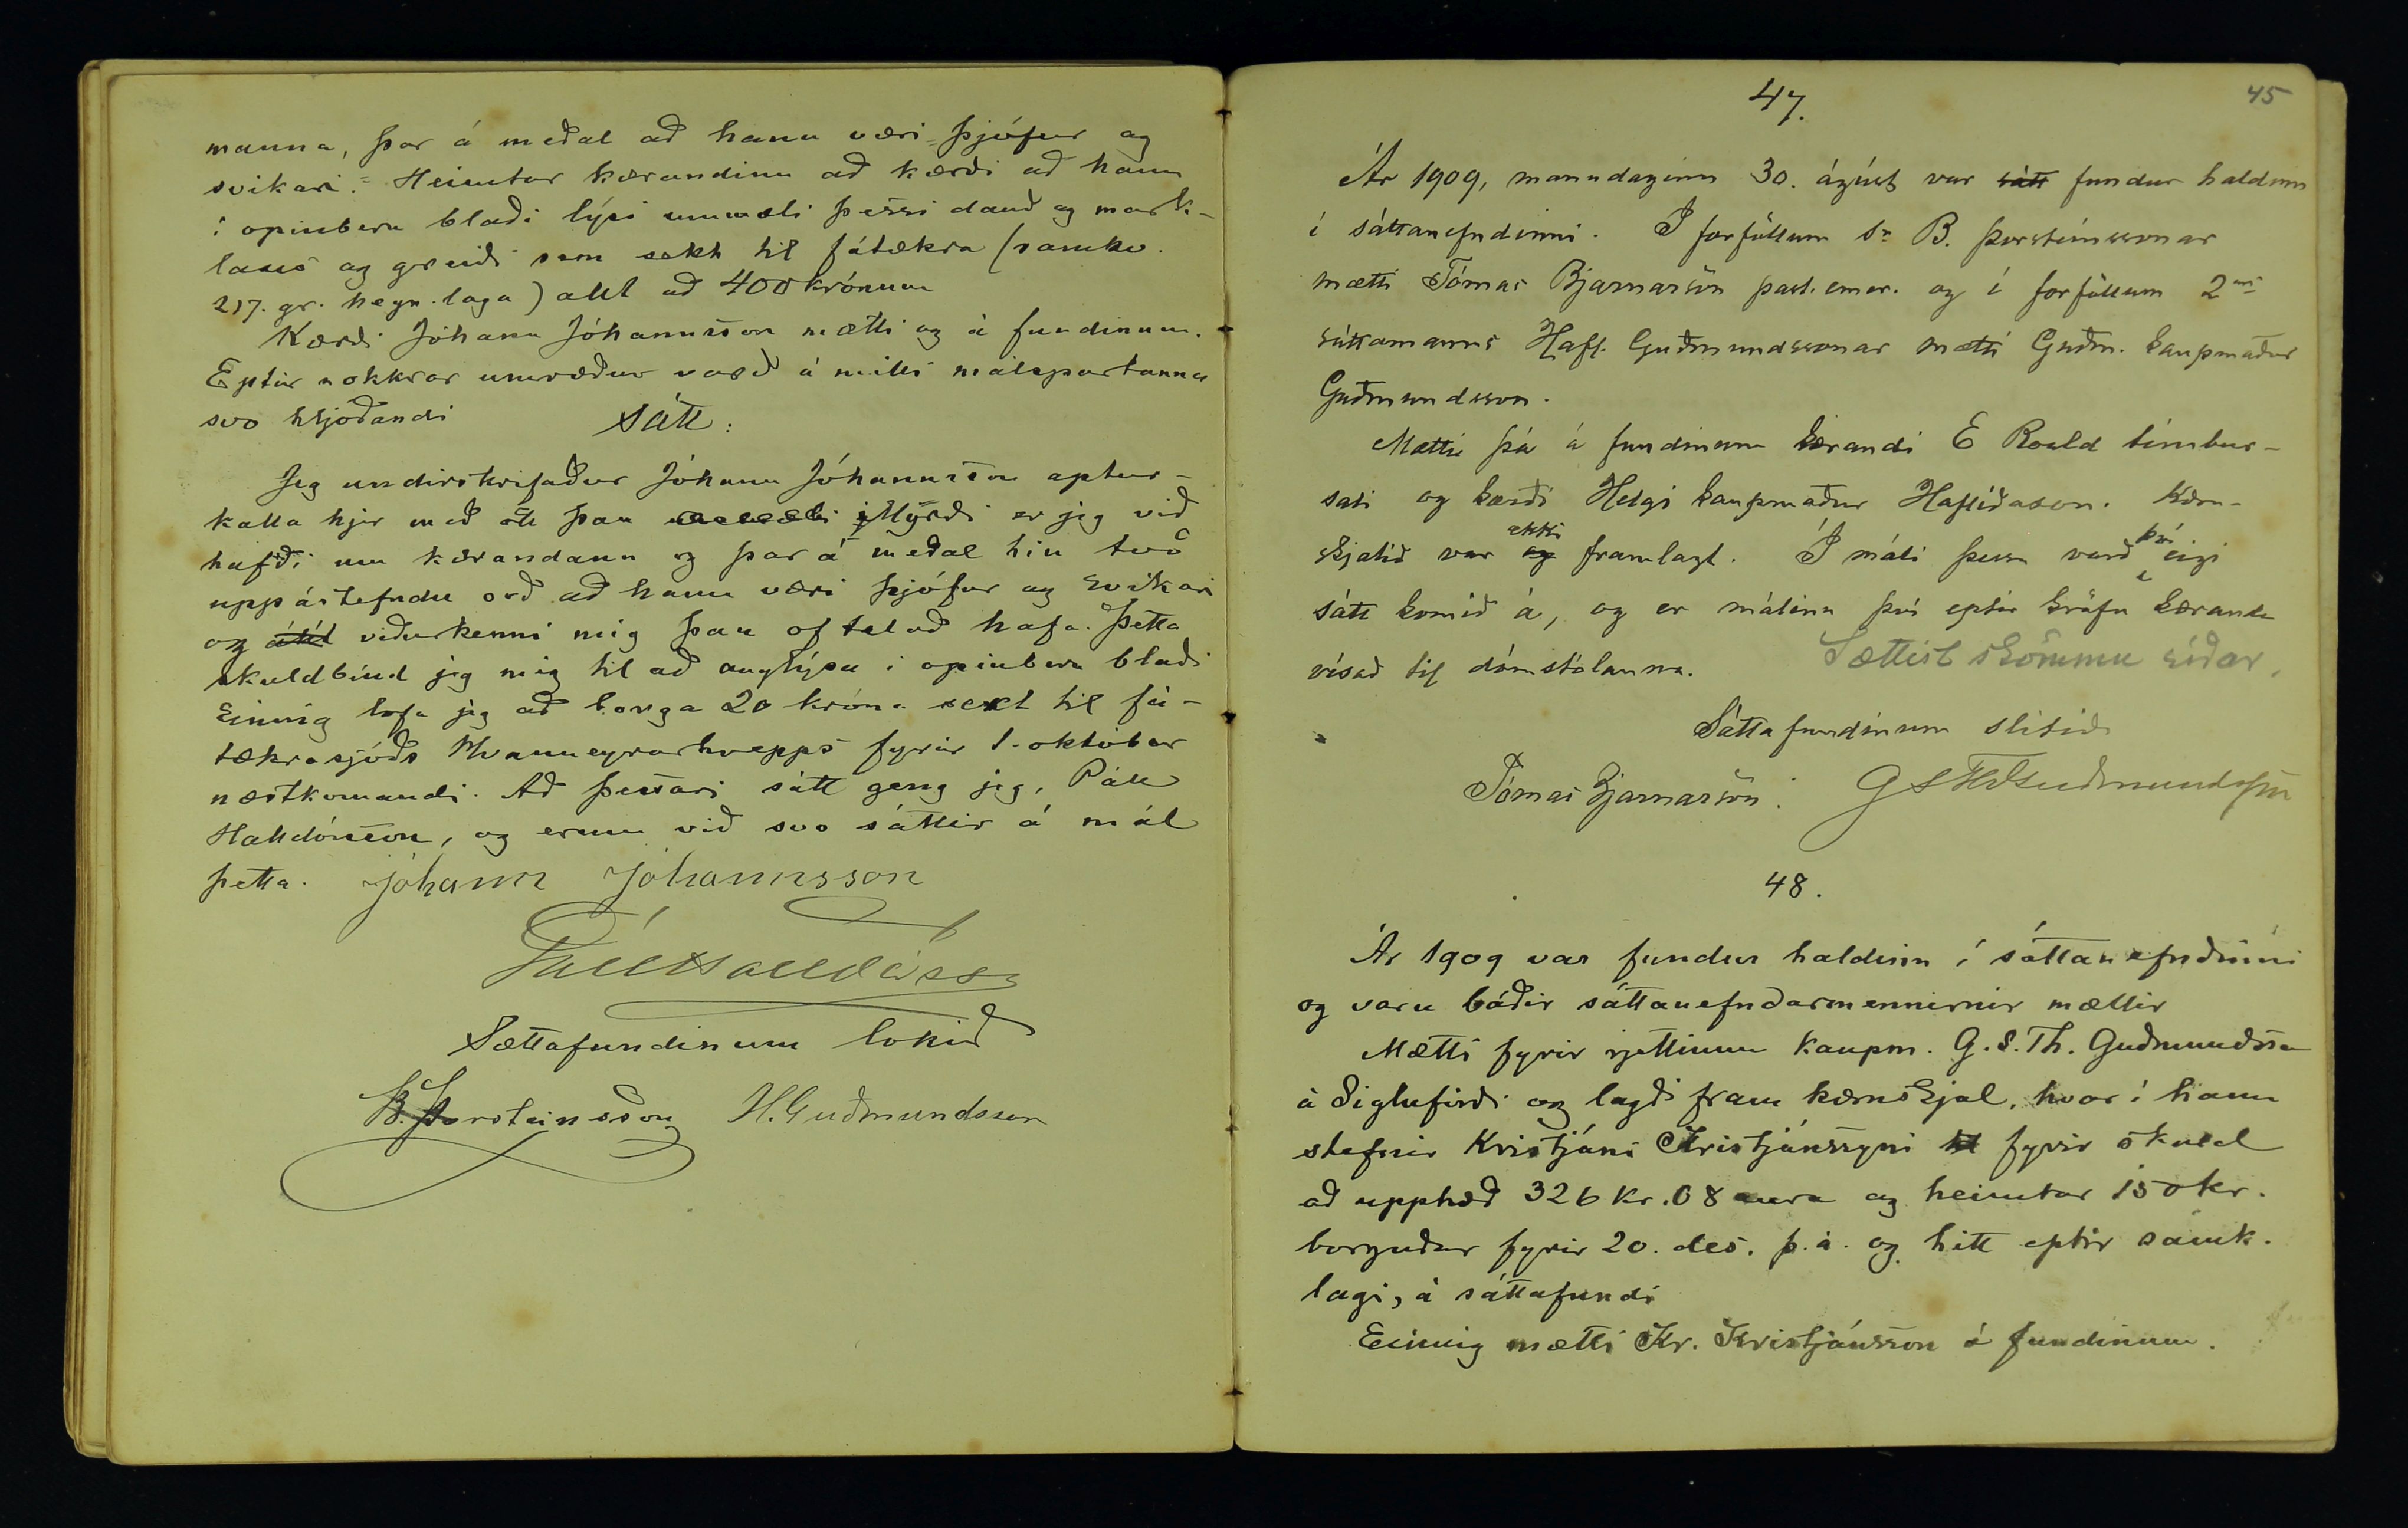 manna, þar á meðal að hann væri "þjófur og
svikari." Heimtar kærandinn að kærði að hann
í opinberu blaði lýsi ummæli þessi dauð og mark-
laus og greiði sem sekt til fátækra (samkv.
217. gr. hegn. laga) allt að 400 krónum
Kærði Jóhann Jóhannsson mætti og á fundinum.
Eptir nokkrar umræður varð á milli málspartanna
svo hljóðandi sátt:
Jeg undirskrifaður Jóhann Jóhannsson aptur-
kalla hjer með öll þau illyrði er jeg við
hafði um kærandann og þar á meðal hin tvö
uppástefndu orð að hann væri þjófur og svikari
og viðurkenni mig þau oftalað hafa. Þetta
skuldbind jeg mig til að auglýsa i opinberu blaði
Einnig lofa jeg að borga 20 króna sekt til fá-
tækrasjóðs Hvanneyrarhrepps fyrir 1. október
næstkomandi. Að þessari sátt geng jeg, Páll
Halldórsson, og erum við svo sáttir á mál
þetta. Jóhann Jóhannsson
Páll Halldórss.
Sættafundinum lokið
B. Þorsteinsson H. Guðmundsson
45
47.
Ár 1909, mánudaginn 30. ágúst var sátt fundur haldinn
í sáttanefndinni. Í forföllum sr B. Þorsteinssonar
mætti Tómas Bjarnarson past. emer. og í forföllum 2ars
sáttamanns Hafl. Guðmundssonar mætti Guðm. kaupmaður
Guðmundsson.
Mætti þá á fundinum kærandi E Roald timbur-
sali og kærði Helgi kaupmaður Hafliðason. Kæru-
skjalið var og ekki framlagt. Í máli þessu varð því eigi
sátt komið á, og er málinu því eptir kröfu kæranda
vísað til dómstólanna. Sættist skömmu síðar.
Sáttafundinum slitið
Tómas Bjarnarson. G S Th Guðmundsson
48.
Ár 1909 var fundur haldinn í sáttanefndinni
og voru báðir sáttanefndarmennirnir mættir
Mætti fyrir rjettinum kaupm. G. S. Th. Guðmundsson
á Siglufirði og lagði fram kæruskjal, hvar í hann
stefnir Kristjáni Kristjánssyni til fyrir skuld
að upphæð 326 kr. 08 aura og heimtar 150 kr.
borgaðar fyrir 20. des. þ. á. og hitt eptir samk.
lagi, á sáttafundi
Einnig mætti Kr. Kristjánsson á fundinum.